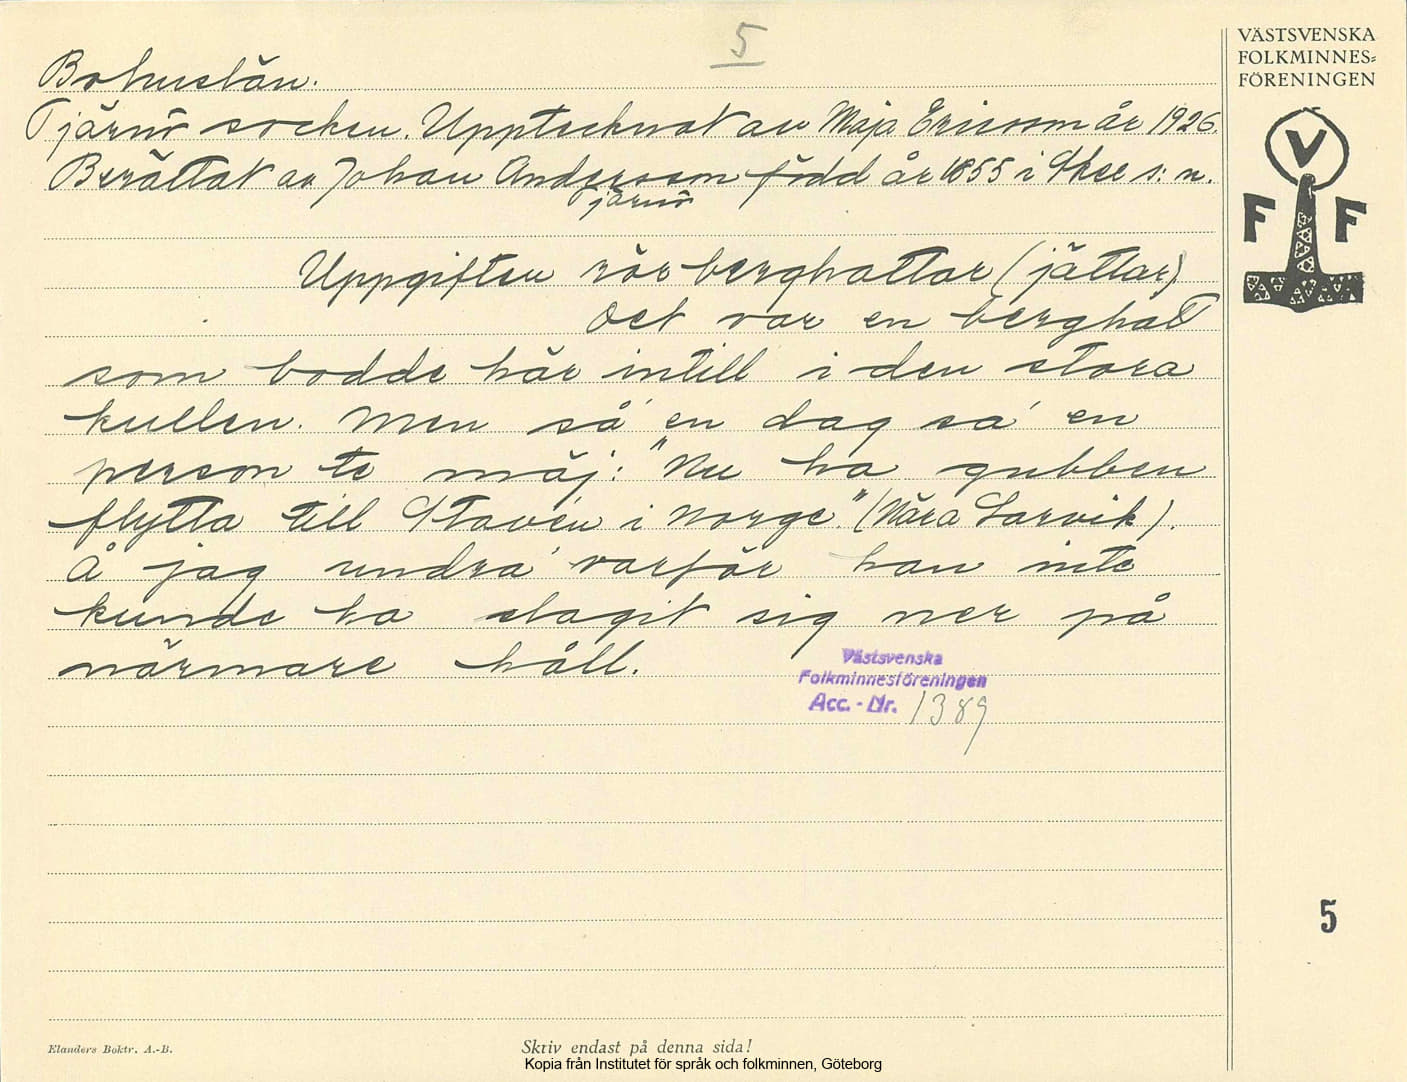 5
VÄSTSVENSKA
FOLKMINNES-
FÖRENINGEN
V
F F
Bohuslän.
Tjärnö socken. Upptecknat av Maja Ericson år 1926.
Berättat av Johan Andersson född år 1855 i Skee s:n.
Tjärnö
Uppgiften rör berghattar (jättar)
Det var en berghatt
som bodde här intill i den stora
kullen. Men så en dag sa' en
person te mäj: "Nu ha gubben
flytta till Staven i Norge." (Nära Larvik).
Å jag undra' varför han inte
kunde ha slagit sig ner på
närmare håll.
Västsvenska
Folkminnesföreningen
Acc. - Nr. 1389
5
Elanders Boktr. A.-B.
Skriv endast på denna sida!
Kopia från Institutet för språk och folkminnen, Göteborg